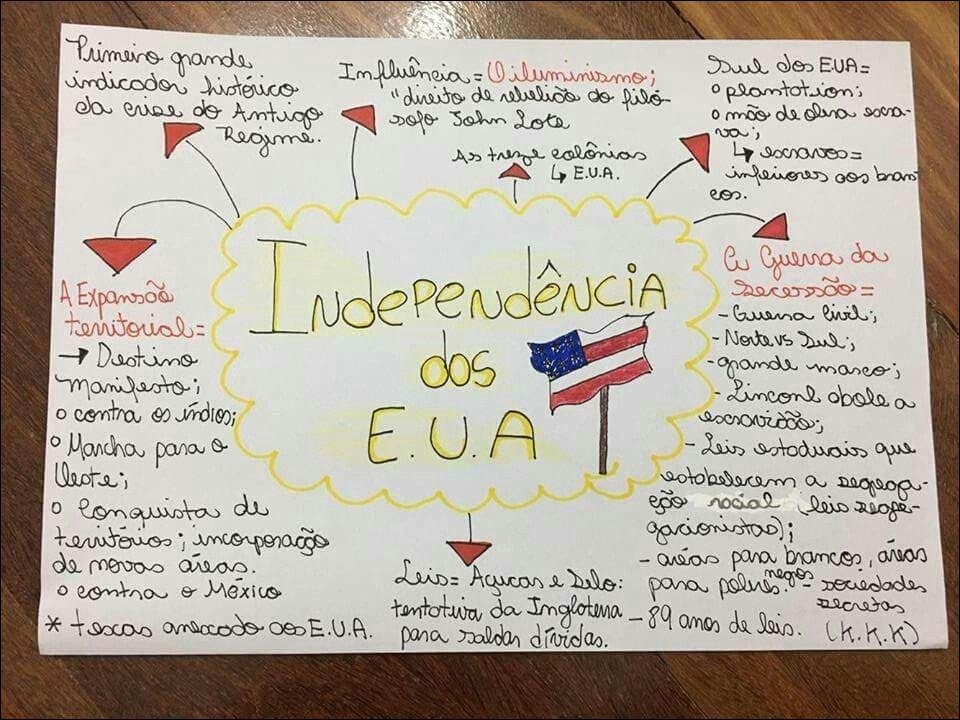 Primeiro grande
indicador histórico
da crise do Antigo
Regime.
Influência = O iluminismo;
"direito de rebelião do filó
sofo John Lote
As treze colônias
↳ E.U.A.
Sul dos EUA =
o plantation;
o mão de obra escra-
va;
↳ escravos =
inferiores aos bran-
cos.
A Expansão
territorial =
→ Destino
Manifesto;
o contra os índios;
o Marcha para o
Oeste;
o Conquista de
territórios; incorporação
de novas áreas.
o contra o México
* texas anexado aos E.U.A.
Independência
dos
E.U.A
A Guerra da
secessão =
- Guerra Civil;
- Norte vs Sul;
- grande marco;
- Linconl abole a
escravidão;
- Leis estaduais que
estabelecem a segrega-
ção social (leis segre-
gacionistas);
- áreas para brancos, áreas
para pobres. negros - sociedades
secretas
- 89 anos de leis. (K.K.K)
Leis = Açucar e Selo:
tentativa da Inglaterra
para saldar dívidas.